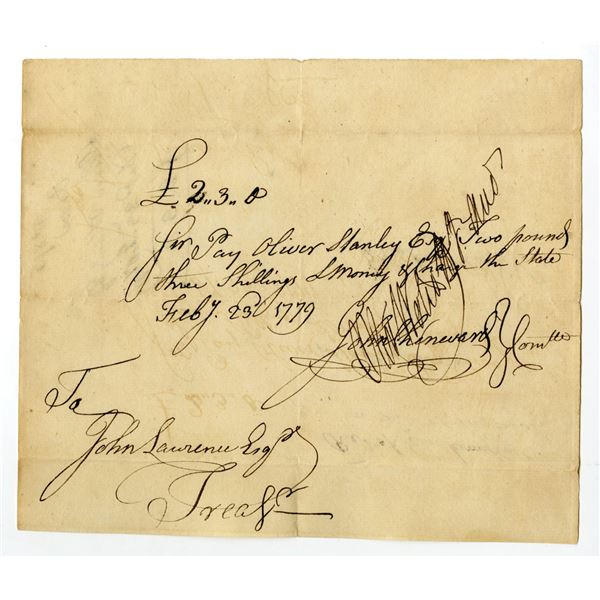 £ 2.. 3.. 0
Sir Pay Oliver Stanley Esqr Two pounds
three Shillings LMoney & Charge the State
Feby. 23d 1779
John Chenevard Comttee
To
John Lawrence Esqr
Treasr